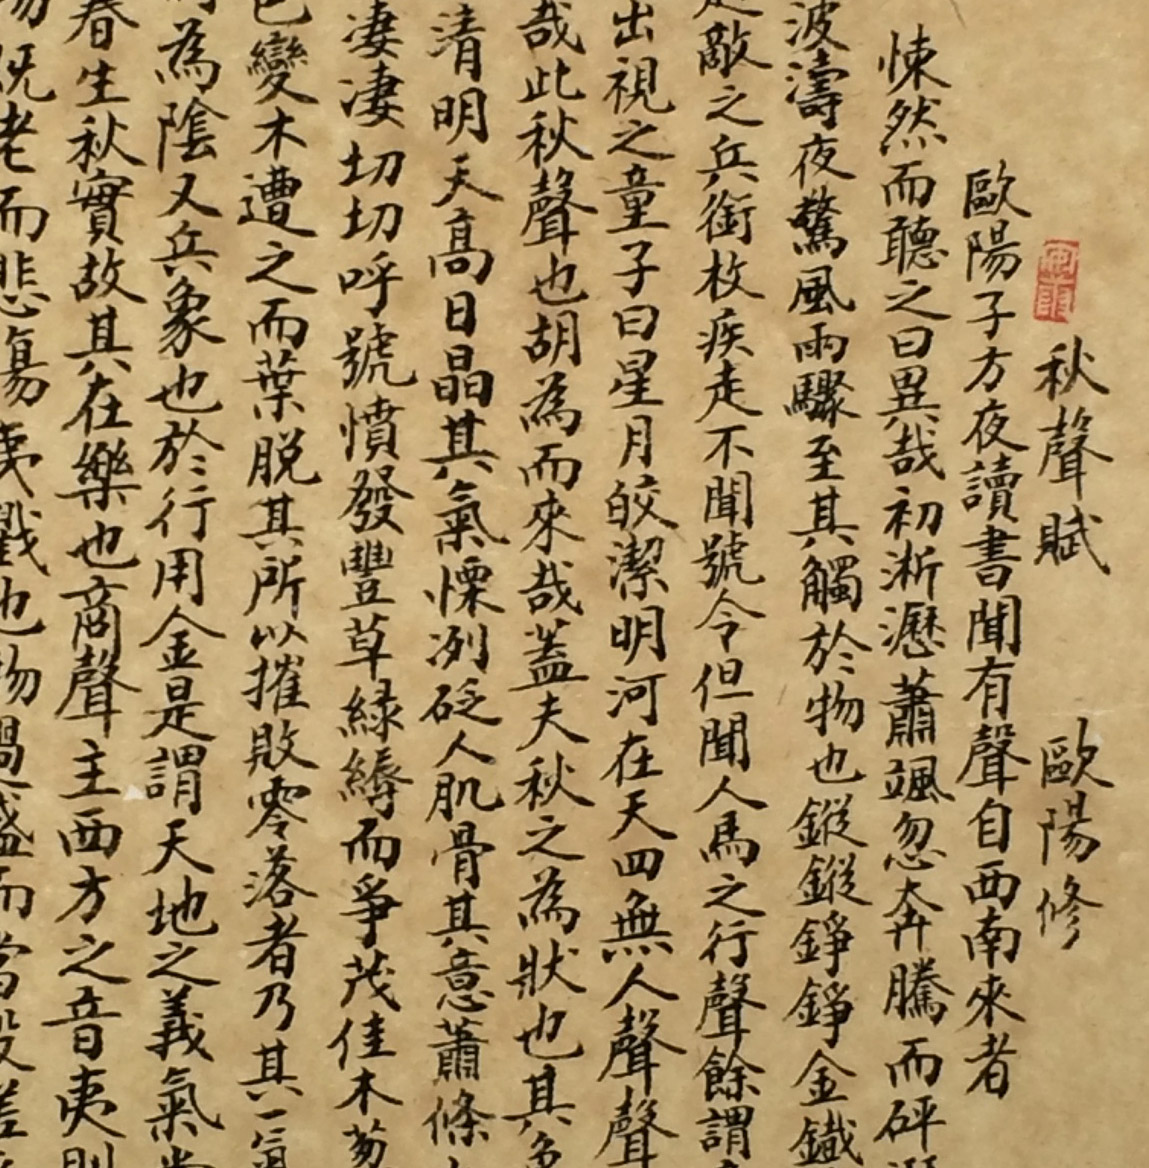 秋聲賦 歐陽修
歐陽子方夜讀書聞有聲自西南來者
悚然而聽之曰異哉初淅瀝蕭颯忽奔騰而砰
波濤夜驚風雨驟至其觸於物也鏦鏦錚錚金鐵
敵之兵銜枚疾走不聞號令但聞人馬之行聲餘謂
出視之童子曰星月皎潔明河在天四無人聲聲
哉此秋聲也胡為而來哉蓋夫秋之為狀也其
清明天高日晶其氣慄冽砭人肌骨其意蕭條
淒淒切切呼號憤發豐草綠縟而爭茂佳木
色變木遭之而葉脫其所以摧敗零落者乃其一氣
為陰又兵象也於行用金是謂天地之義氣
春生秋實故其在樂也商聲主西方之音夷則
既老而悲傷夷戮也物過盛而當殺